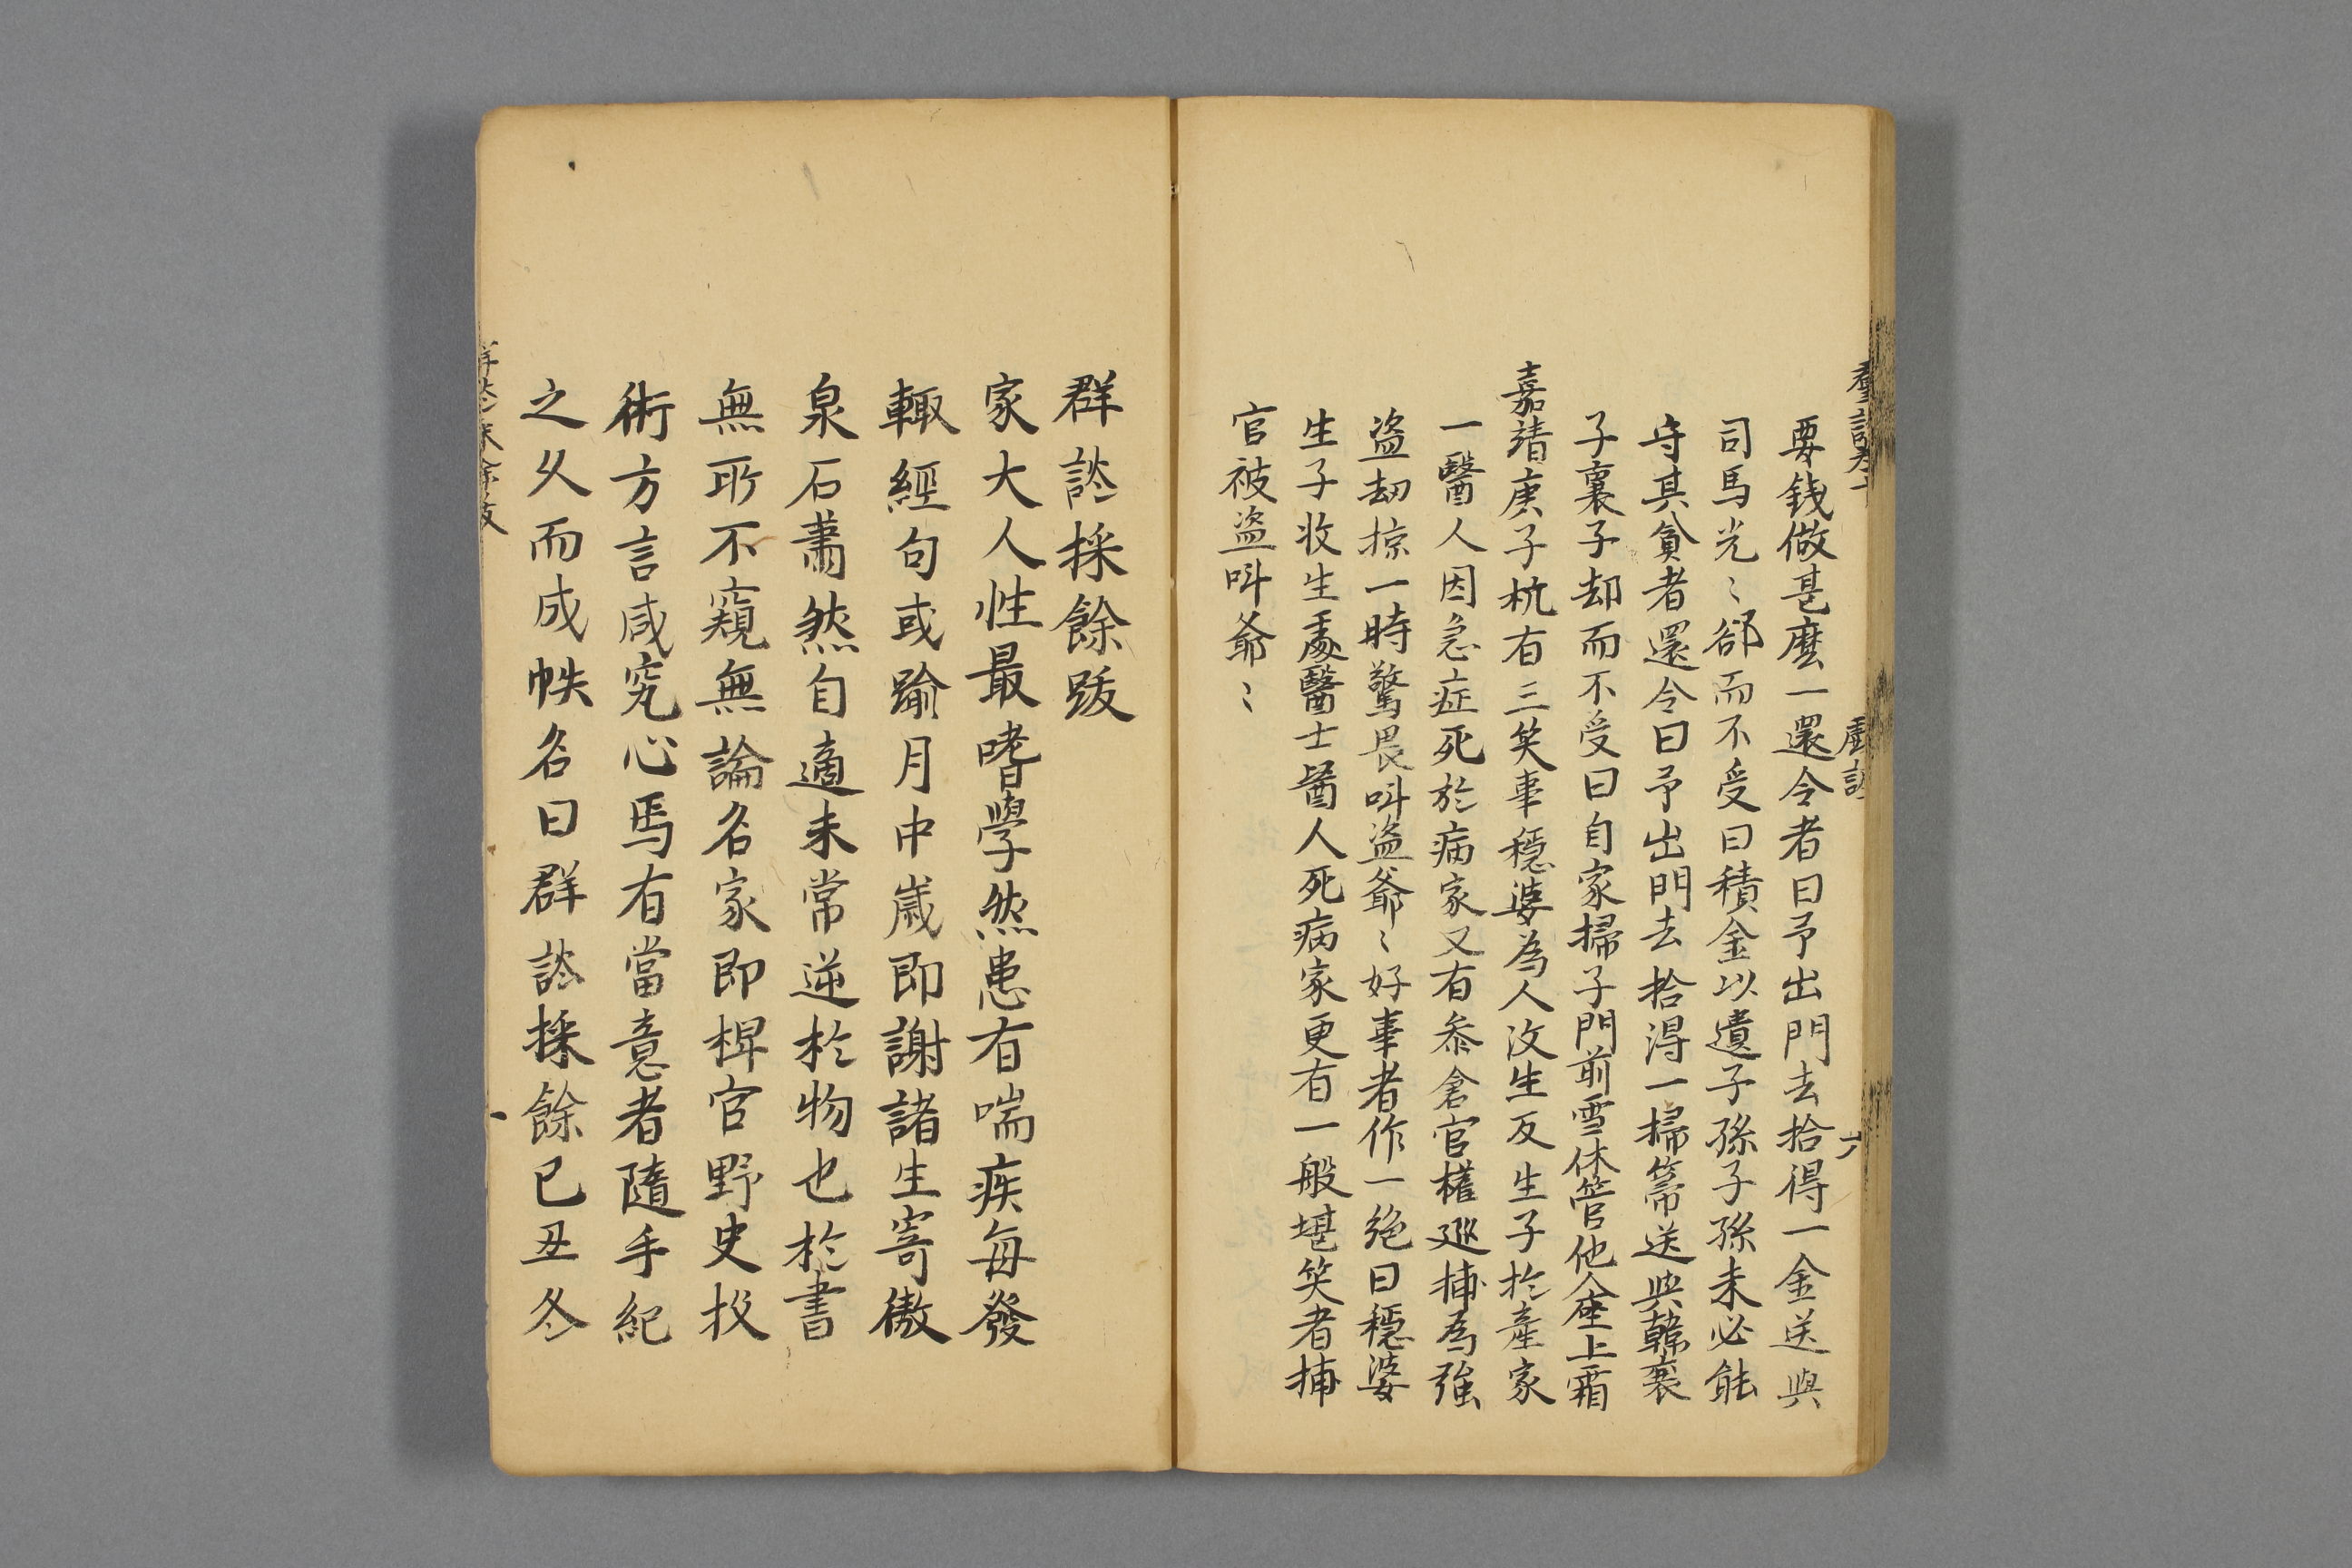 要錢做甚麼一還令者曰予出門去拾得一金送與
司馬光〻郤而不受曰積金以遺子孫子孫未必能
守其貧者還令曰予出門去拾得一掃箒送與韓襄
子襄子却而不受曰自家掃子門前雪休管他人座上霜
嘉靖庚子杭有三笑事穩婆為人汝生反生子於產家
一醫人因急症死於病家又有叅倉官權廵捕為強
盜劫掠一時驚畏呌盜爺〻好事者作一絕曰穩婆
生子收生處醫士醫人死病家更有一般堪笑者捕
官被盜呌爺〻
群談採餘跋
家大人性最嗜學然患有喘疾每發
輒經句或踰月中嵗即謝諸生寄傲
泉石蕭然自適未常逆於物也於書
無所不窺無論名家即稗官野史技
術方言咸究心焉有當意者隨手紀
之久而成帙名曰群談採餘已丑冬